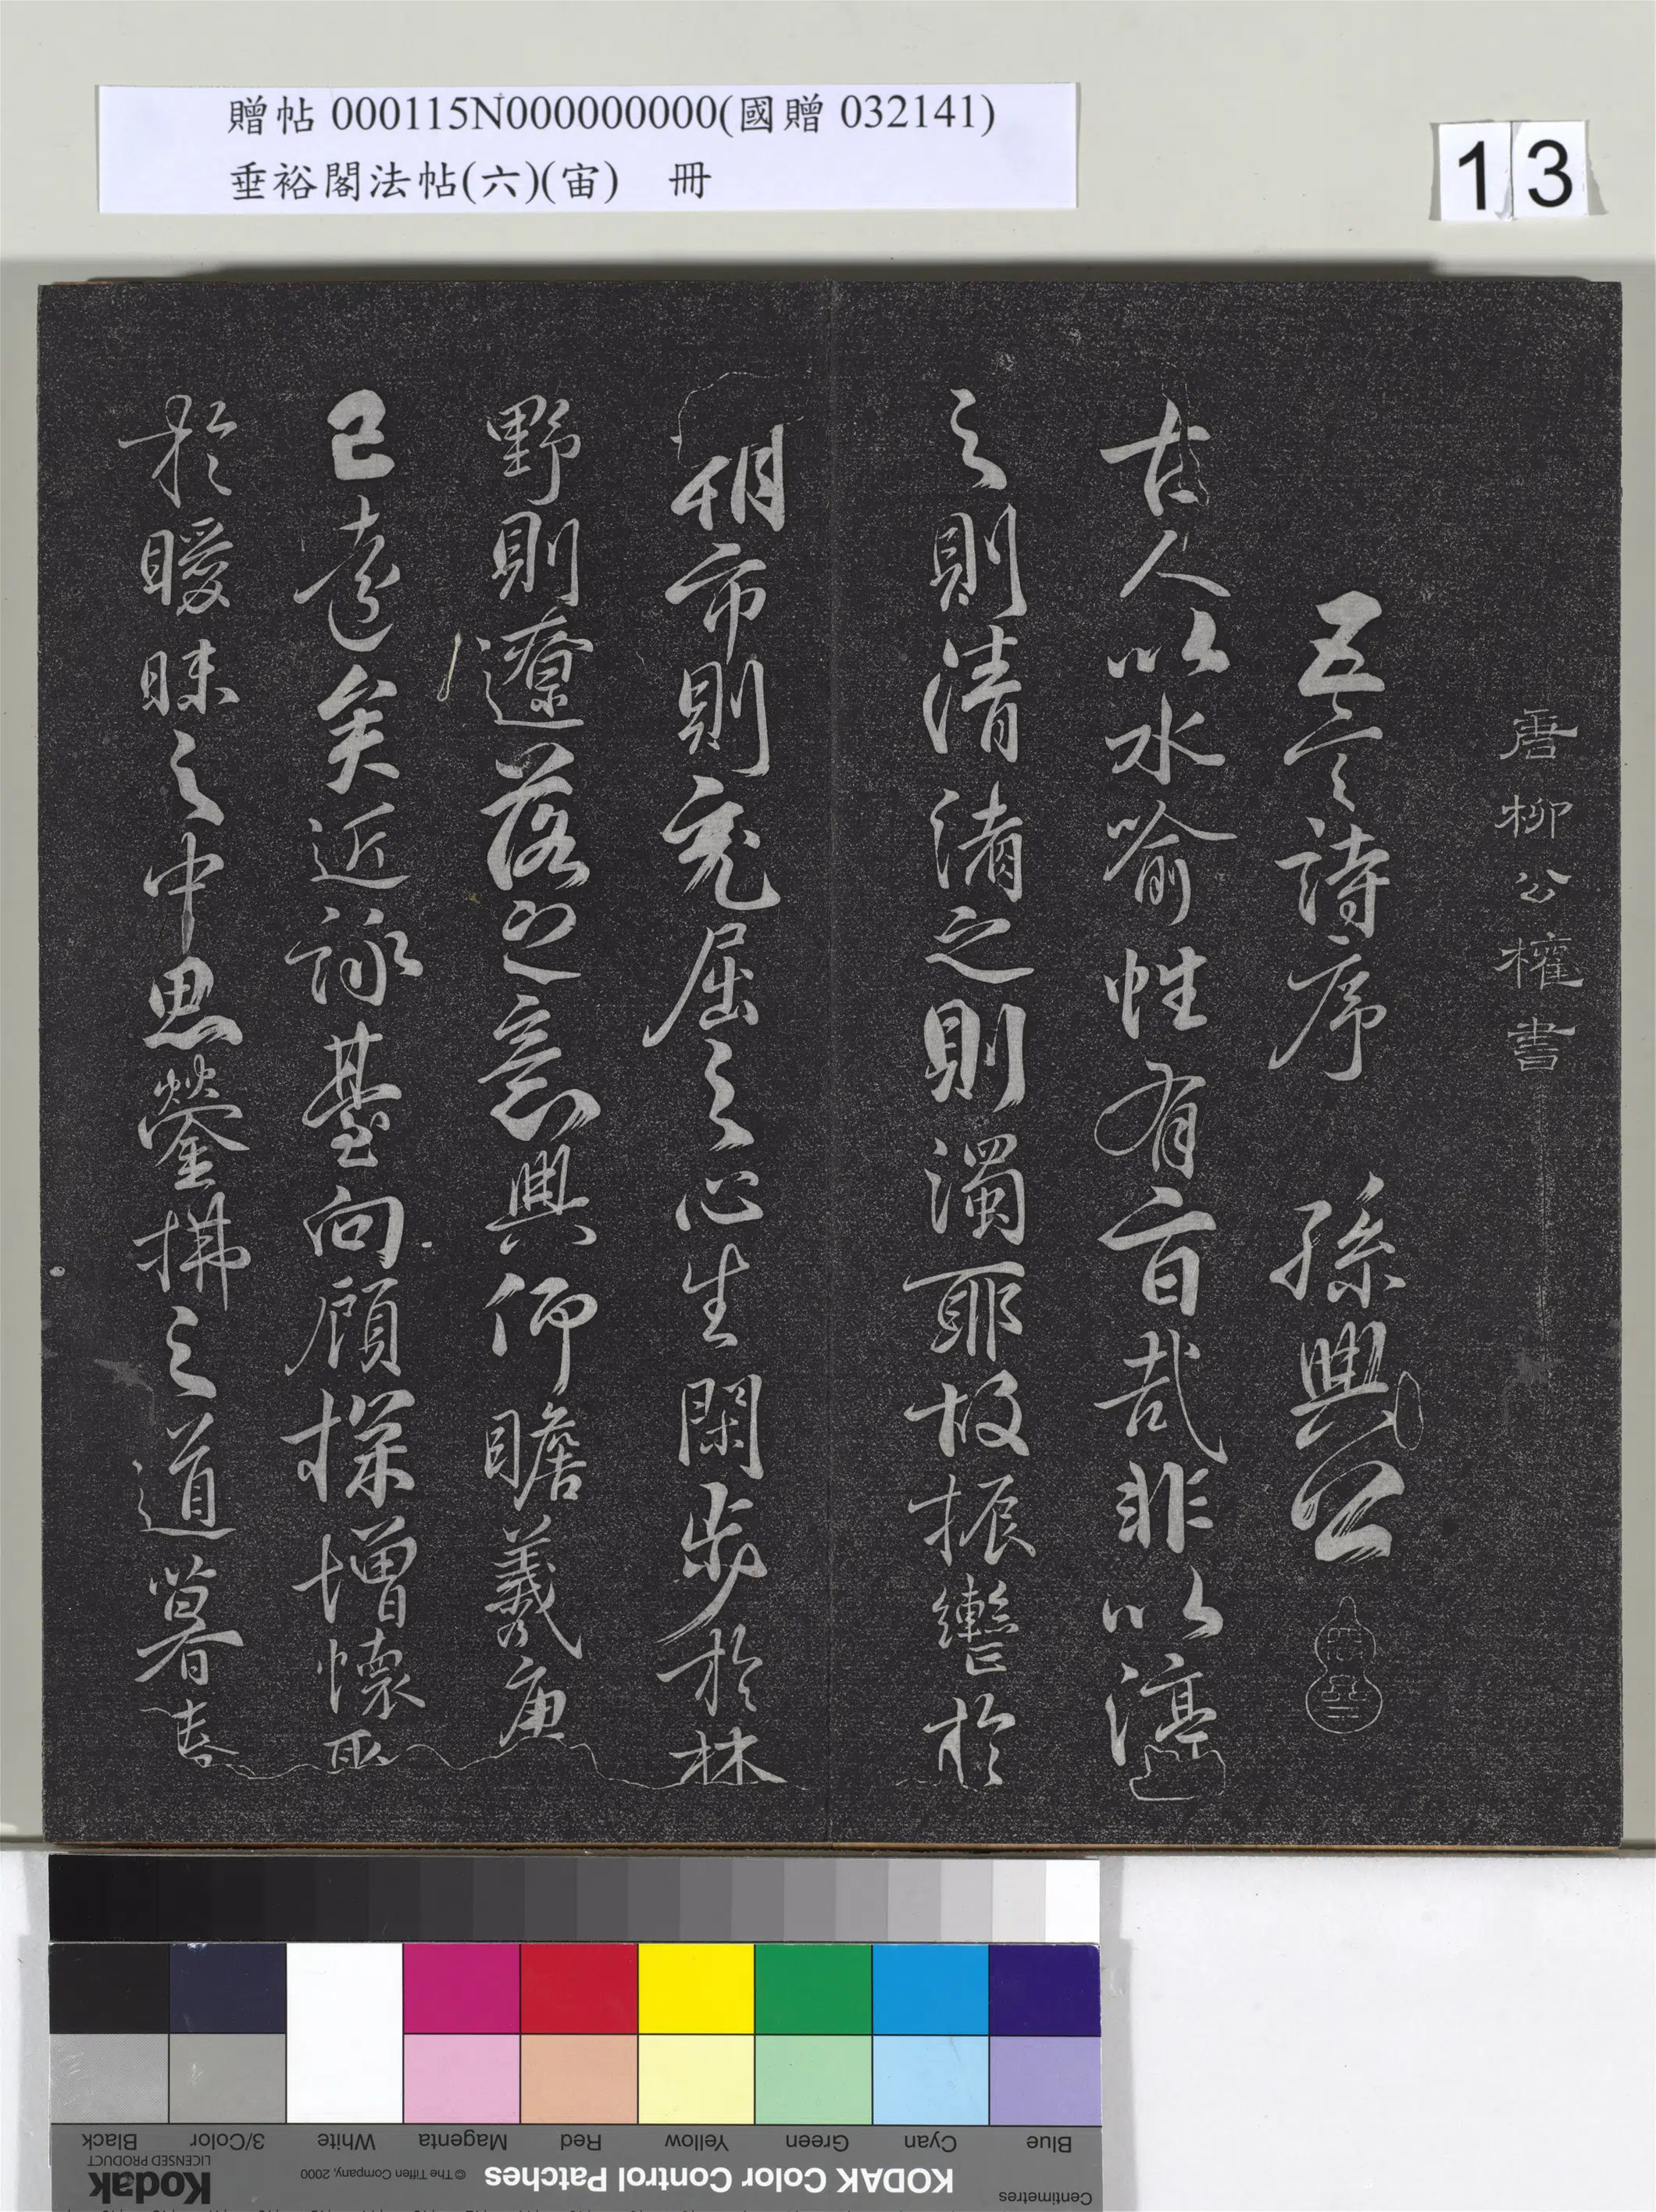 贈帖 000115N000000000(國贈 032141)
垂裕閣法帖(六)(宙) 冊
13
唐柳公權書
五言詩序 孫興公
古人以水喻性有旨哉非以渟
之則清淆之則濁耶故振轡於
朝市則充屈之心生閑步於林
野則遼落之意興仰瞻羲唐
已遠矣近詠臺向顧探增懷
於曖昧之中思瑩拂之道暮春
Blue
Cyan
Green
Yellow
Red
Magenta
White
3/Color
Black
Centimetres
KODAK Color Control Patches
© The Tiffen Company, 2000
Kodak
LICENSED PRODUCT